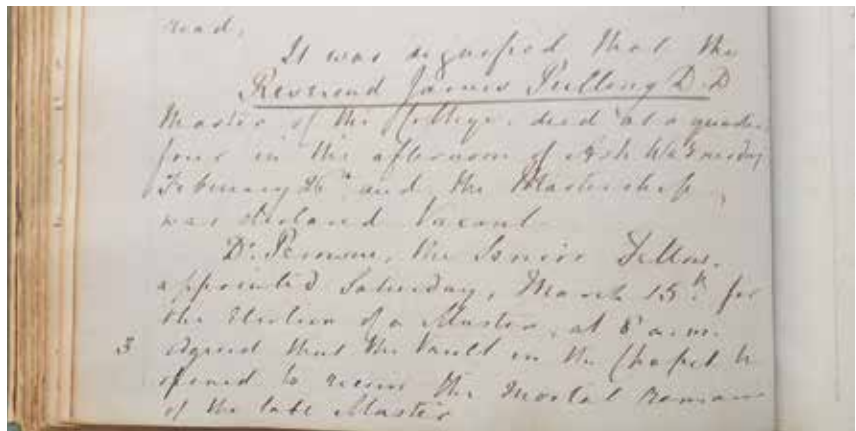 read.
It was signified that the
Reverend James Pulling D.D
Master of the College, died at a quarter
four in the afternoon of Ash Wednesday
February 26th and the Mastership
was declared Vacant.
Dr. Perowne, the Senior Fellow,
appointed Saturday, March 15th for
the Election of a Master, at 8 a.m.
3 Agreed that the Vault in the Chapel be
opened to receive the Mortal remains
of the late Master